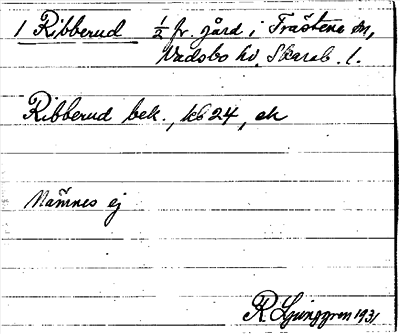 1 Ribberud ½ fr. gård i Trästena sn,
Vadsbo hd. Skarab. l.
Ribberud bek., kb 24, ek
Nämnes ej
R. Ljunggren 1931